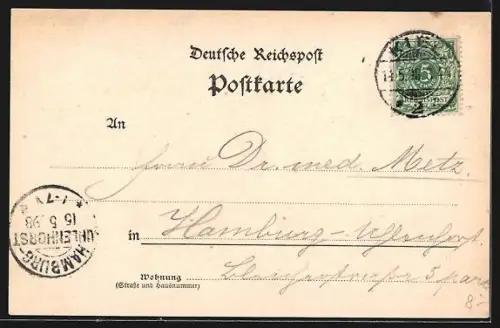 Deutsche Reichspost
Postkarte
KIEL
14.5.98
5
REICHSPOST
* 2
An
Herrn Dr. med. Metz.
in Hamburg-Uhlenhorst.
Wohnung
(Straße und Hausnummer)
5 part
8-
HAMBURG-
UHLENHORST
15 5 98
* 7-